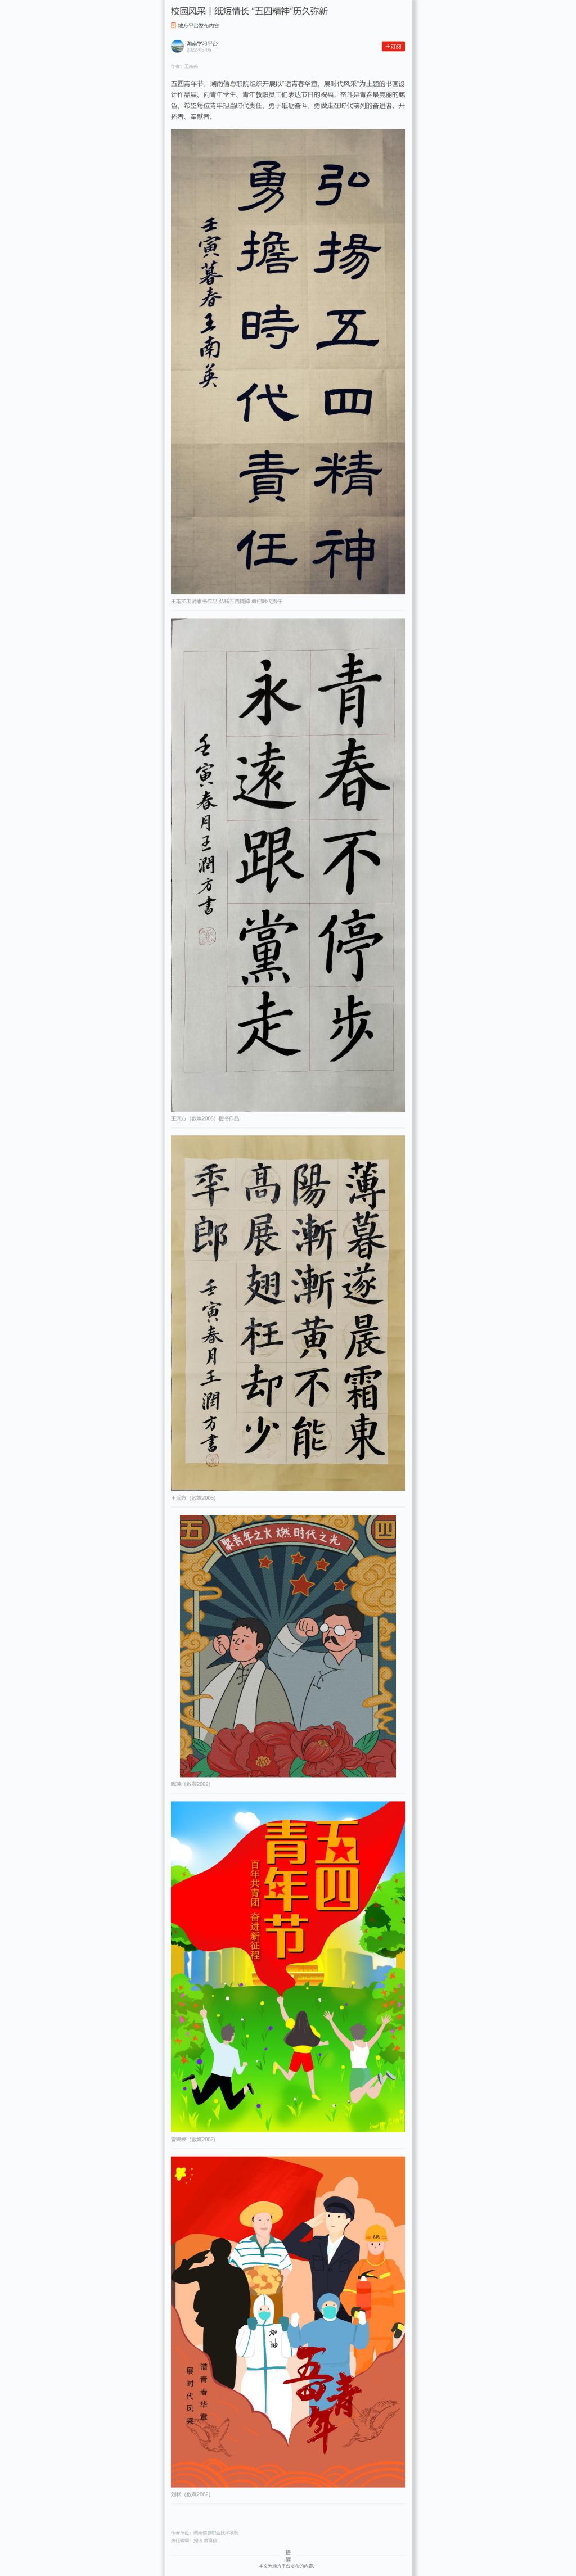 校园风采丨纸短情长 “五四精神”历久弥新
地方平台发布内容
湖南学习平台
2022-05-06
+订阅
作者：王南英
五四青年节，湖南信息职院组织开展以“谱青春华章，展时代风采”为主题的书画设
计作品展。向青年学生、青年教职员工们表达节日的祝福。奋斗是青春最亮丽的底
色，希望每位青年担当时代责任、勇于砥砺奋斗，勇做走在时代前列的奋进者、开
拓者、奉献者。
弘揚五四精神
勇擔時代責任
壬寅暮春王南英
王南英老师隶书作品 弘扬五四精神 勇担时代责任
青春不停步
永遠跟黨走
壬寅春月王潤方書
王润方（数媒2006）楷书作品
薄暮遂晨霜東
陽漸漸黄不能
高展翅枉却少
年郎
壬寅春月王潤方書
王润方（数媒2006）
五
聚青年之火 燃时代之光
四
（数媒2002）
五四
青年节
百年共青团 奋进新征程
（数媒2002）
加油
谱青春华章
展时代风采
五四青年
刘欣（数媒2002）
作者单位：湖南信息职业技术学院
责任编辑：
本页为地方平台发布的内容。